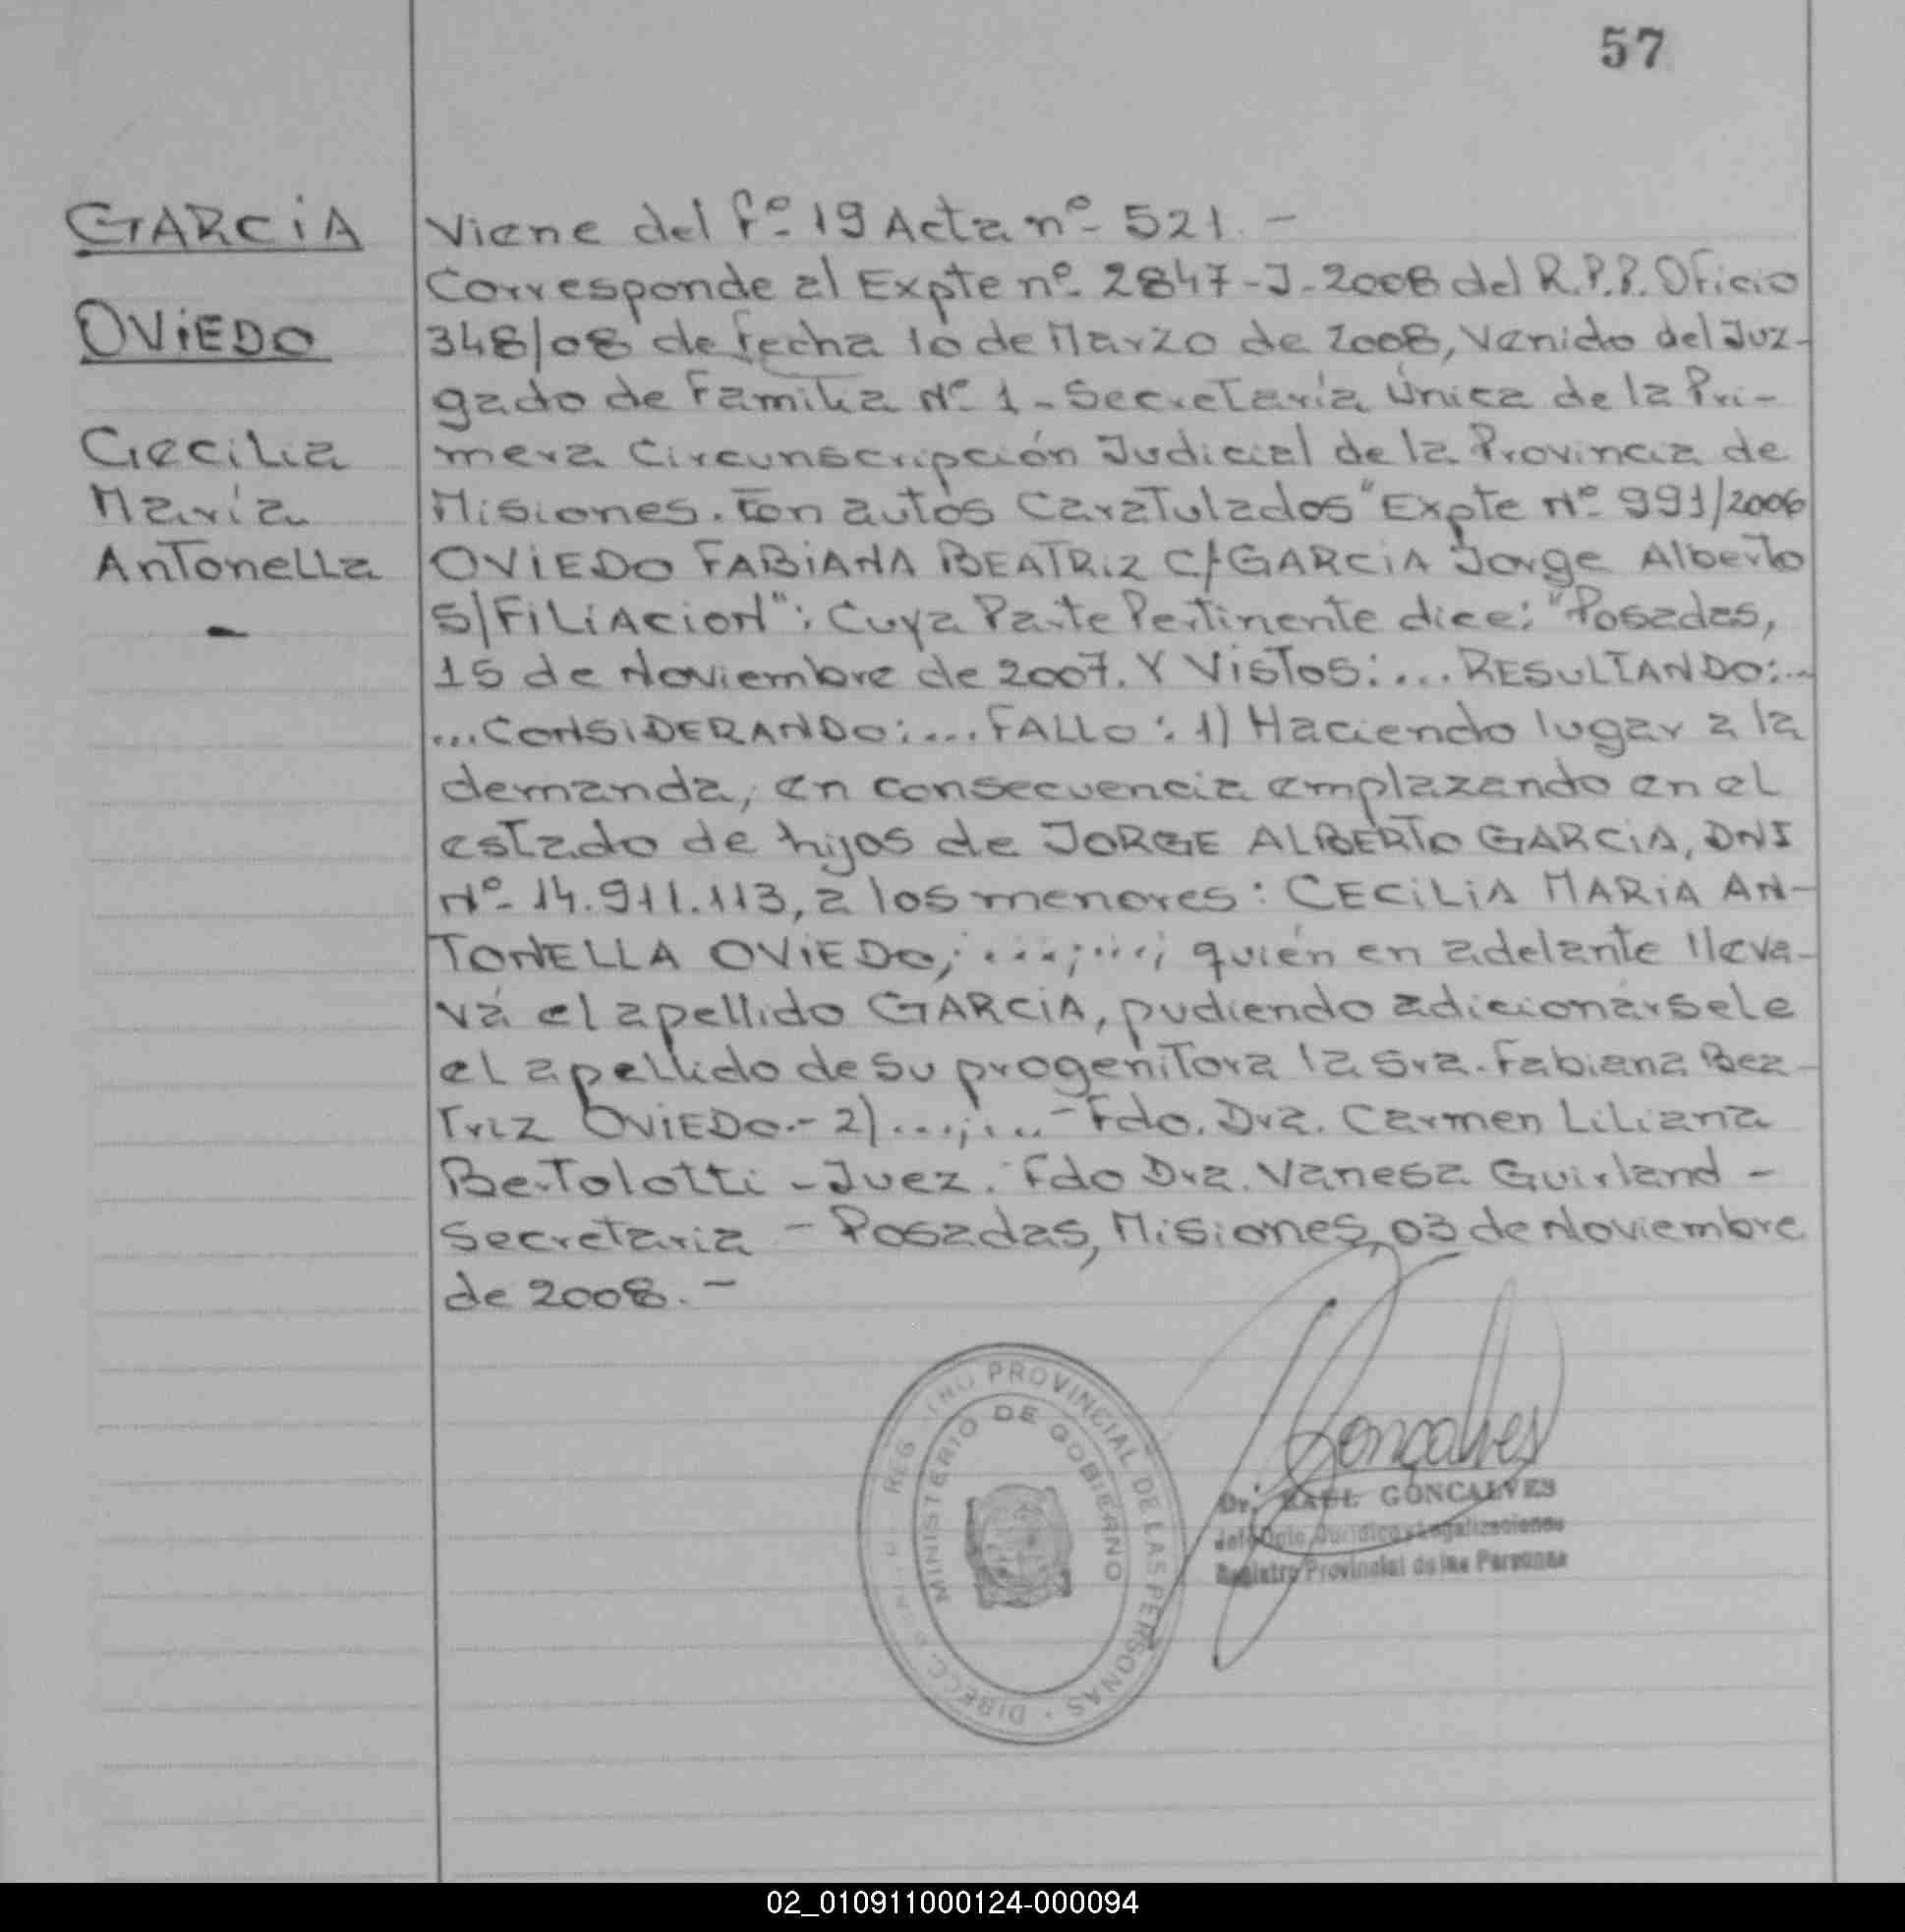 57
GARCIA
OVIEDO
Cecilia
María
Antonella
-
Viene del fº 19 Acta nº 521. -
Corresponde al Expte nº 2847-J-2008 del R.P.P. Oficio
348/08 de fecha 10 de Marzo de 2008, Venido del Juz-
gado de Familia Nº 1 - Secretaría Única de la Pri-
mera Circunscripción Judicial de la Provincia de
Misiones. En autos Caratulados "Expte Nº 991/2006
OVIEDO FABIANA BEATRIZ C/GARCIA Jorge Alberto
S/FILIACION": Cuya Parte Pertinente dice: "Posadas,
15 de Noviembre de 2007. Y Vistos:... RESULTANDO:...
...CONSIDERANDO:... FALLO: 1) Haciendo lugar a la
demanda, en consecuencia emplazando en el
estado de hijos de JORGE ALBERTO GARCIA, DNI
Nº 14.911.113, a los menores: CECILIA MARIA AN-
TONELLA OVIEDO,; ...;...; quién en adelante lleva-
rá el apellido GARCIA, pudiendo adicionársele
el apellido de su progenitora la Sra. Fabiana Bea-
Triz OVIEDO.- 2) ...;... - Fdo. Dra. Carmen Liliana
Bertolotti - Juez. Fdo Dra. Vanesa Guirland -
Secretaria - Posadas, Misiones, 03 de Noviembre
de 2008. -
PROVINCIAL DE LAS PERSONAS
MINISTERIO DE GOBIERNO
Goncalves
Dr. RAUL GONCALVES
Jefe Dpto. Jurídico y Legalizaciones
Registro Provincial de las Personas
02_010911000124-000094